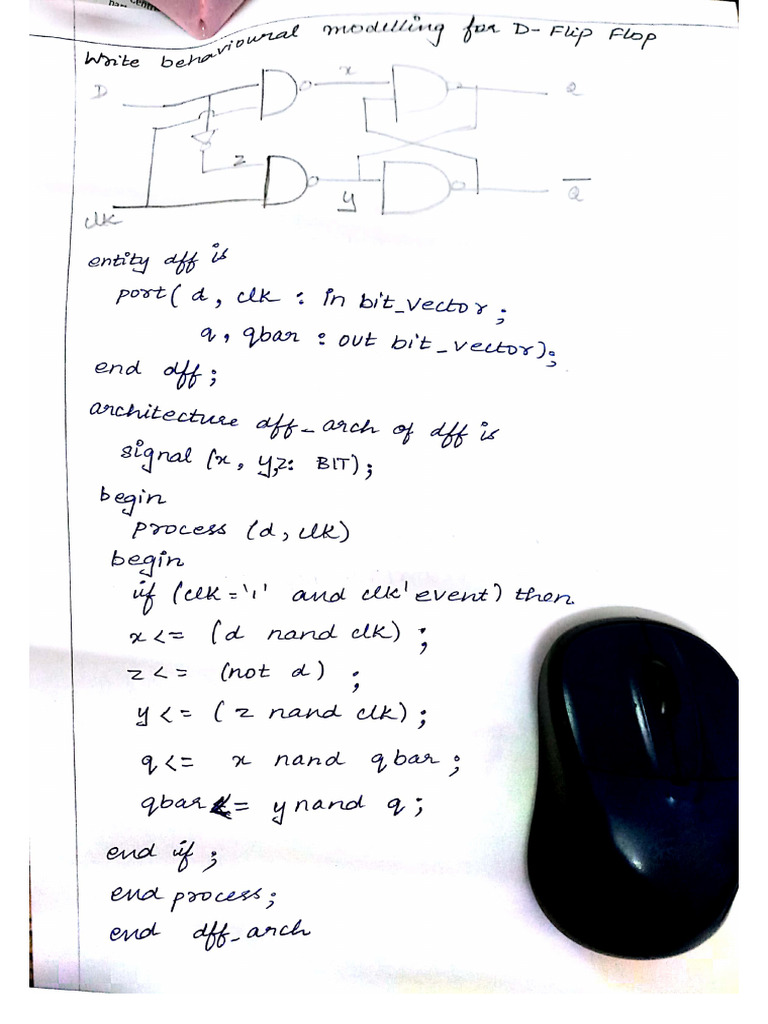 Write behavioural modelling for D- Flip Flop
D
x
Q
z
y
Q
clk
entity dff is
port( d, clk : in bit_vector ;
q, qbar : out bit_vector);
end dff ;
architecture dff_arch of dff is
signal (x, y,z: BIT) ;
begin
process (d, clk)
begin
if (clk = '1' and clk' event) then
x <= (d nand clk) ;
z <= (not d) ;
y <= ( z nand clk) ;
q <= x nand qbar ;
qbar <= y nand q ;
end if ;
end process ;
end dff_arch